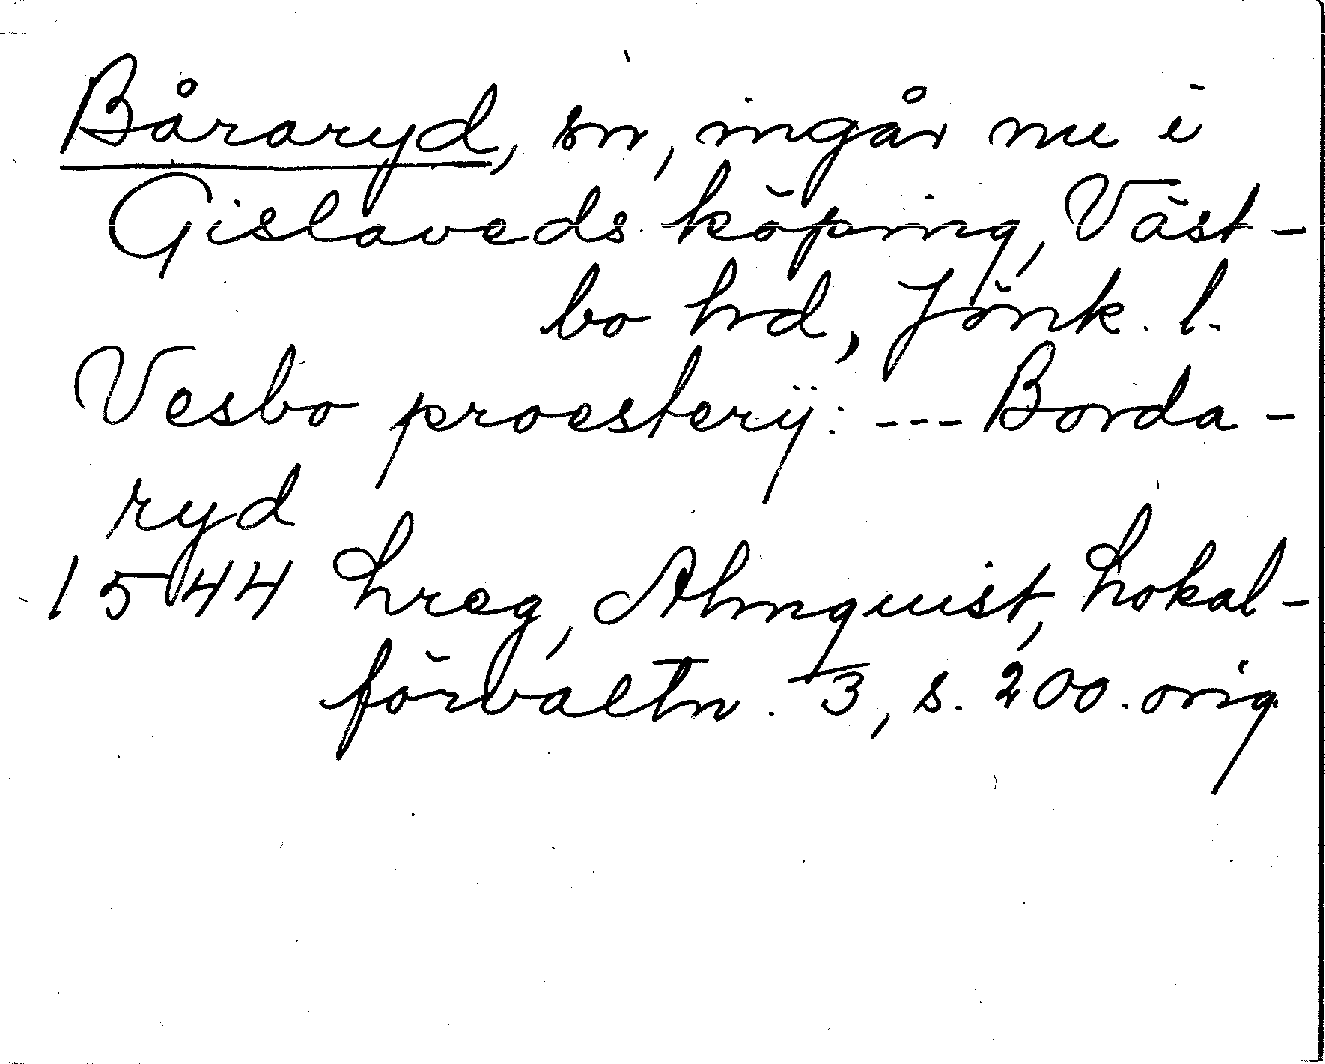 Båraryd, sn, ingår nu i
Gislaveds köping, Väst-
bo hd, Jönk. l.
Vesbo proesterÿ: --- Borda-
ryd
1544 hreg, Almquist, Lokal-
förvaltn. 3, s. 200. orig